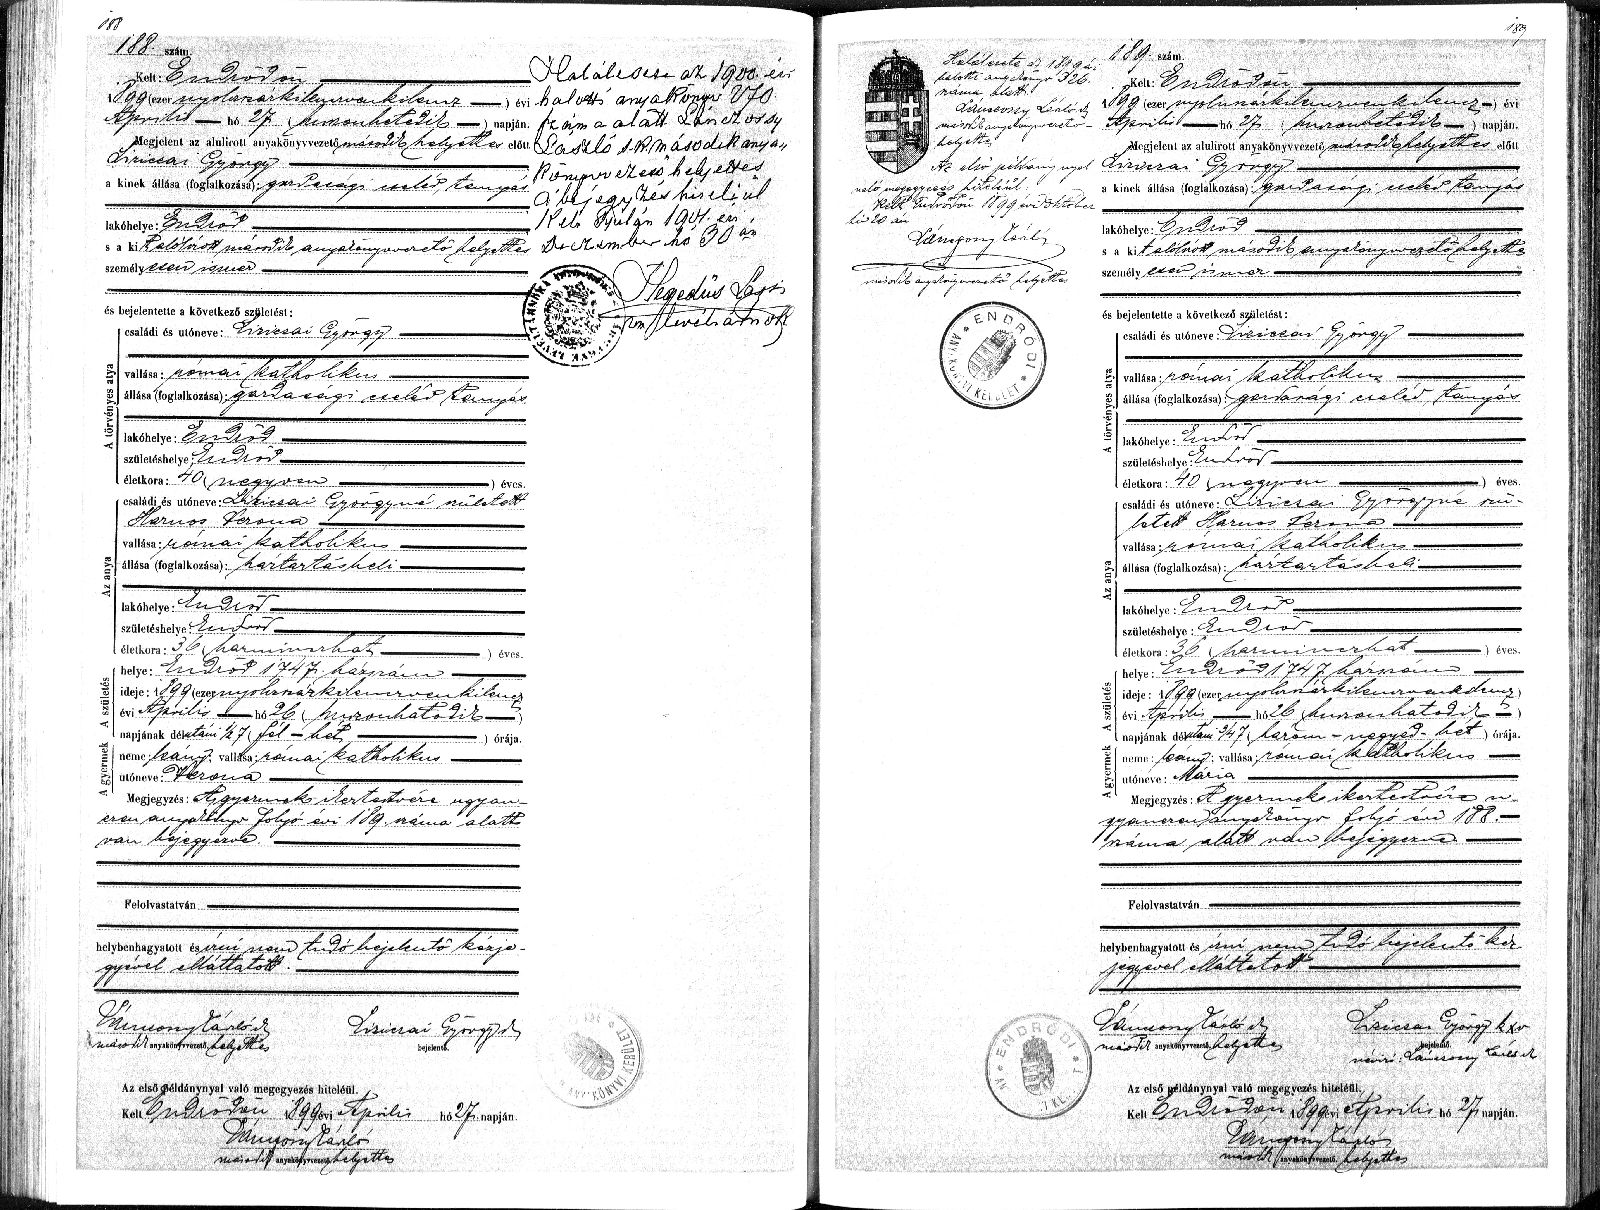 188
188. szám.
Kelt: Endrődön
1899 (ezer nyolczszázkilenczvenkilencz) évi
Április hó 27 (huszonhetedik) napján.
Megjelent az alulirott anyakönyvvezető második helyettes előtt
Liziczai György
a kinek állása (foglalkozása): gazdasági cseléd, tanyás
lakóhelye: Endrőd
s a kit alólirott második anyakönyvvezető helyettes
személyesen ismer
és bejelentette a következő születést:
A törvényes atya
családi és utóneve: Liziczai György
vallása: római katholikus
állása (foglalkozása): gazdasági cseléd tanyás
lakóhelye: Endrőd
születéshelye: Endrőd
életkora: 40 (negyven) éves.
Az anya
családi és utóneve: Liziczai Györgyné született
Harnos Verona
vallása: római katholikus
állása (foglalkozása): háztartásbeli
lakóhelye: Endrőd
születéshelye: Endrőd
életkora: 36 (harminczhat) éves.
A születés
helye: Endrőd 1747. házszám
ideje: 1899 (ezer nyolczszázkilenczvenkilencz
évi Április hó 26 (huszonhatodik)
napjának délutáni ½7 (fél-hét) órája.
A gyermek
neme: leány; vallása: római katholikus
utóneve: Verona
Megjegyzés: A gyermek ikertestvére ugyan-
ezen anyakönyv folyó évi 189. száma alatt
van bejegyezve.
Felolvastatván
helybenhagyatott és írni nem tudó bejelentő kézje-
gyével elláttatott.
második anyakönyvvezető helyettes
Liziczai György
bejelentő.
Az első példánynyal való megegyezés hiteléül.
Kelt Endrődön 1899 évi Április hó 27. napján.
második anyakönyvvezető helyettes
Halálesete az 1900. évi
halotti anyakönyv 270
száma alatt
László s.k. második anya-
könyvvezető helyettes
a bejegyzés hiteléül
Kelt Gyulán 1901. évi
Deczember hó 30 án
Hegedüs
levéltárnok
189
Halálesete az 1899 évi
halotti anyakönyv 326.
száma alatt
második anyakönyvvezető-
helyettes
Az első példánynyal
való megegyezés hiteléül.
Kelt Endrődön 1899 évi október
hó 20 án
második anyakönyvvezető helyettes
ENDRŐDI
189. szám.
Kelt: Endrődön
1899 (ezer nyolczszázkilenczvenkilencz) évi
Április hó 27 (huszonhetedik) napján.
Megjelent az alulirott anyakönyvvezető második helyettes előtt
Liziczai György
a kinek állása (foglalkozása): gazdasági cseléd tanyás
lakóhelye: Endrőd
s a kit alólirott második anyakönyvvezető helyettes
személyesen ismer
és bejelentette a következő születést:
A törvényes atya
családi és utóneve: Liziczai György
vallása: római katholikus
állása (foglalkozása): gazdasági cseléd, tanyás
lakóhelye: Endrőd
születéshelye: Endrőd
életkora: 40 (negyven) éves.
Az anya
családi és utóneve: Liziczai Györgyné szü-
letett Harnos Verona
vallása: római katholikus
állása (foglalkozása): háztartásbeli
lakóhelye: Endrőd
születéshelye: Endrőd
életkora: 36 (harminczhat) éves.
A születés
helye: Endrőd 1747 házszám
ideje: 1899 (ezer nyolczszázkilenczvenkilencz)
évi Április hó 26 (huszonhatodik)
napjának délutáni ¾7 (három-negyed-hét) órája.
A gyermek
neme: leány; vallása: római katholikus
utóneve: Mária
Megjegyzés: A gyermek ikertestvére u-
gyanezen anyakönyv folyó évi 188.
száma alatt van bejegyezve
Felolvastatván
helybenhagyatott és írni nem tudó bejelentő kéz-
jegyével elláttatott
második anyakönyvvezető helyettes
Liziczai György k x v
bejelentő.
Az első példánynyal való megegyezés hiteléül.
Kelt Endrődön 1899 évi Április hó 27. napján.
második anyakönyvvezető helyettes
ENDRŐDI